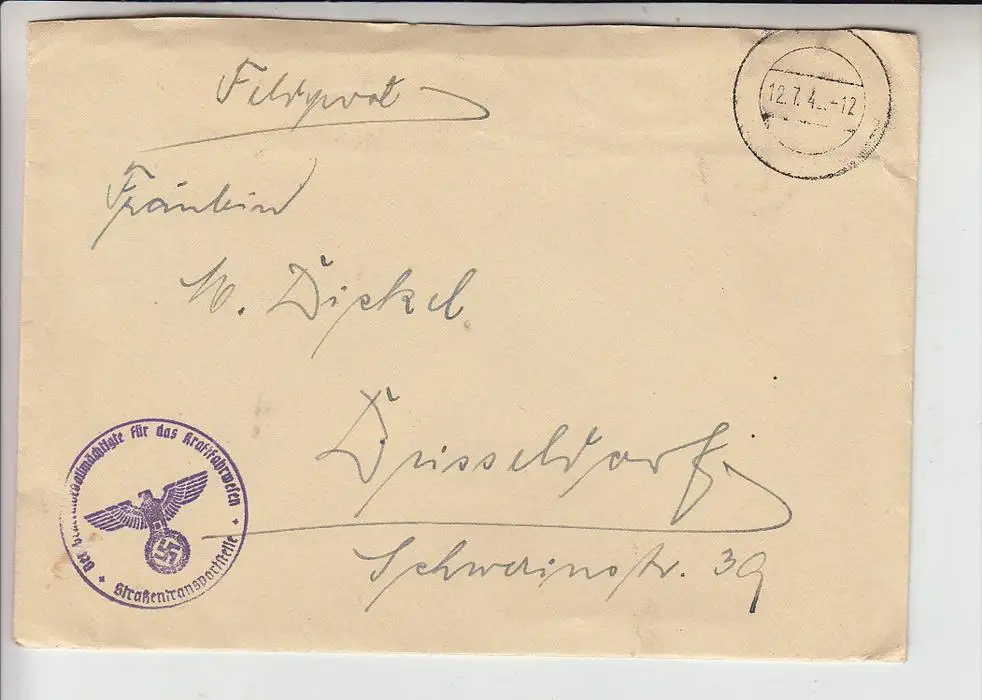 Feldpost
12.7.4 -12
Fräulein
M. Dickel
Düsseldorf
Schwerinstr. 39
Der Generalbevollmächtigte für das Kraftfahrwesen
Straßentransportstelle